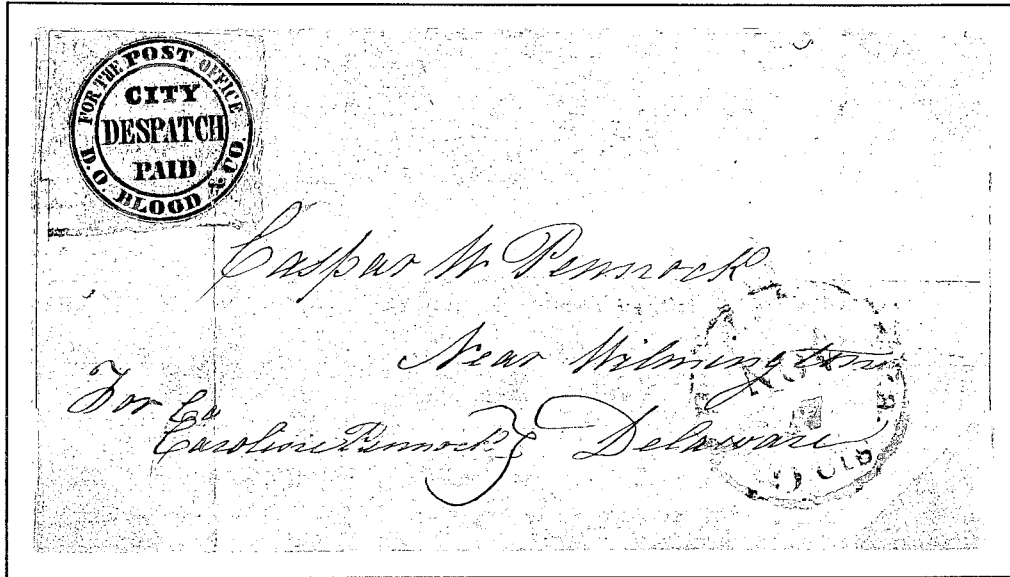 FOR THE POST OFFICE
CITY
DESPATCH
PAID
D.O. BLOOD & CO.
Caspar W Pennock
Near Wilmington
For Ca
Caroline Pennock Delaware